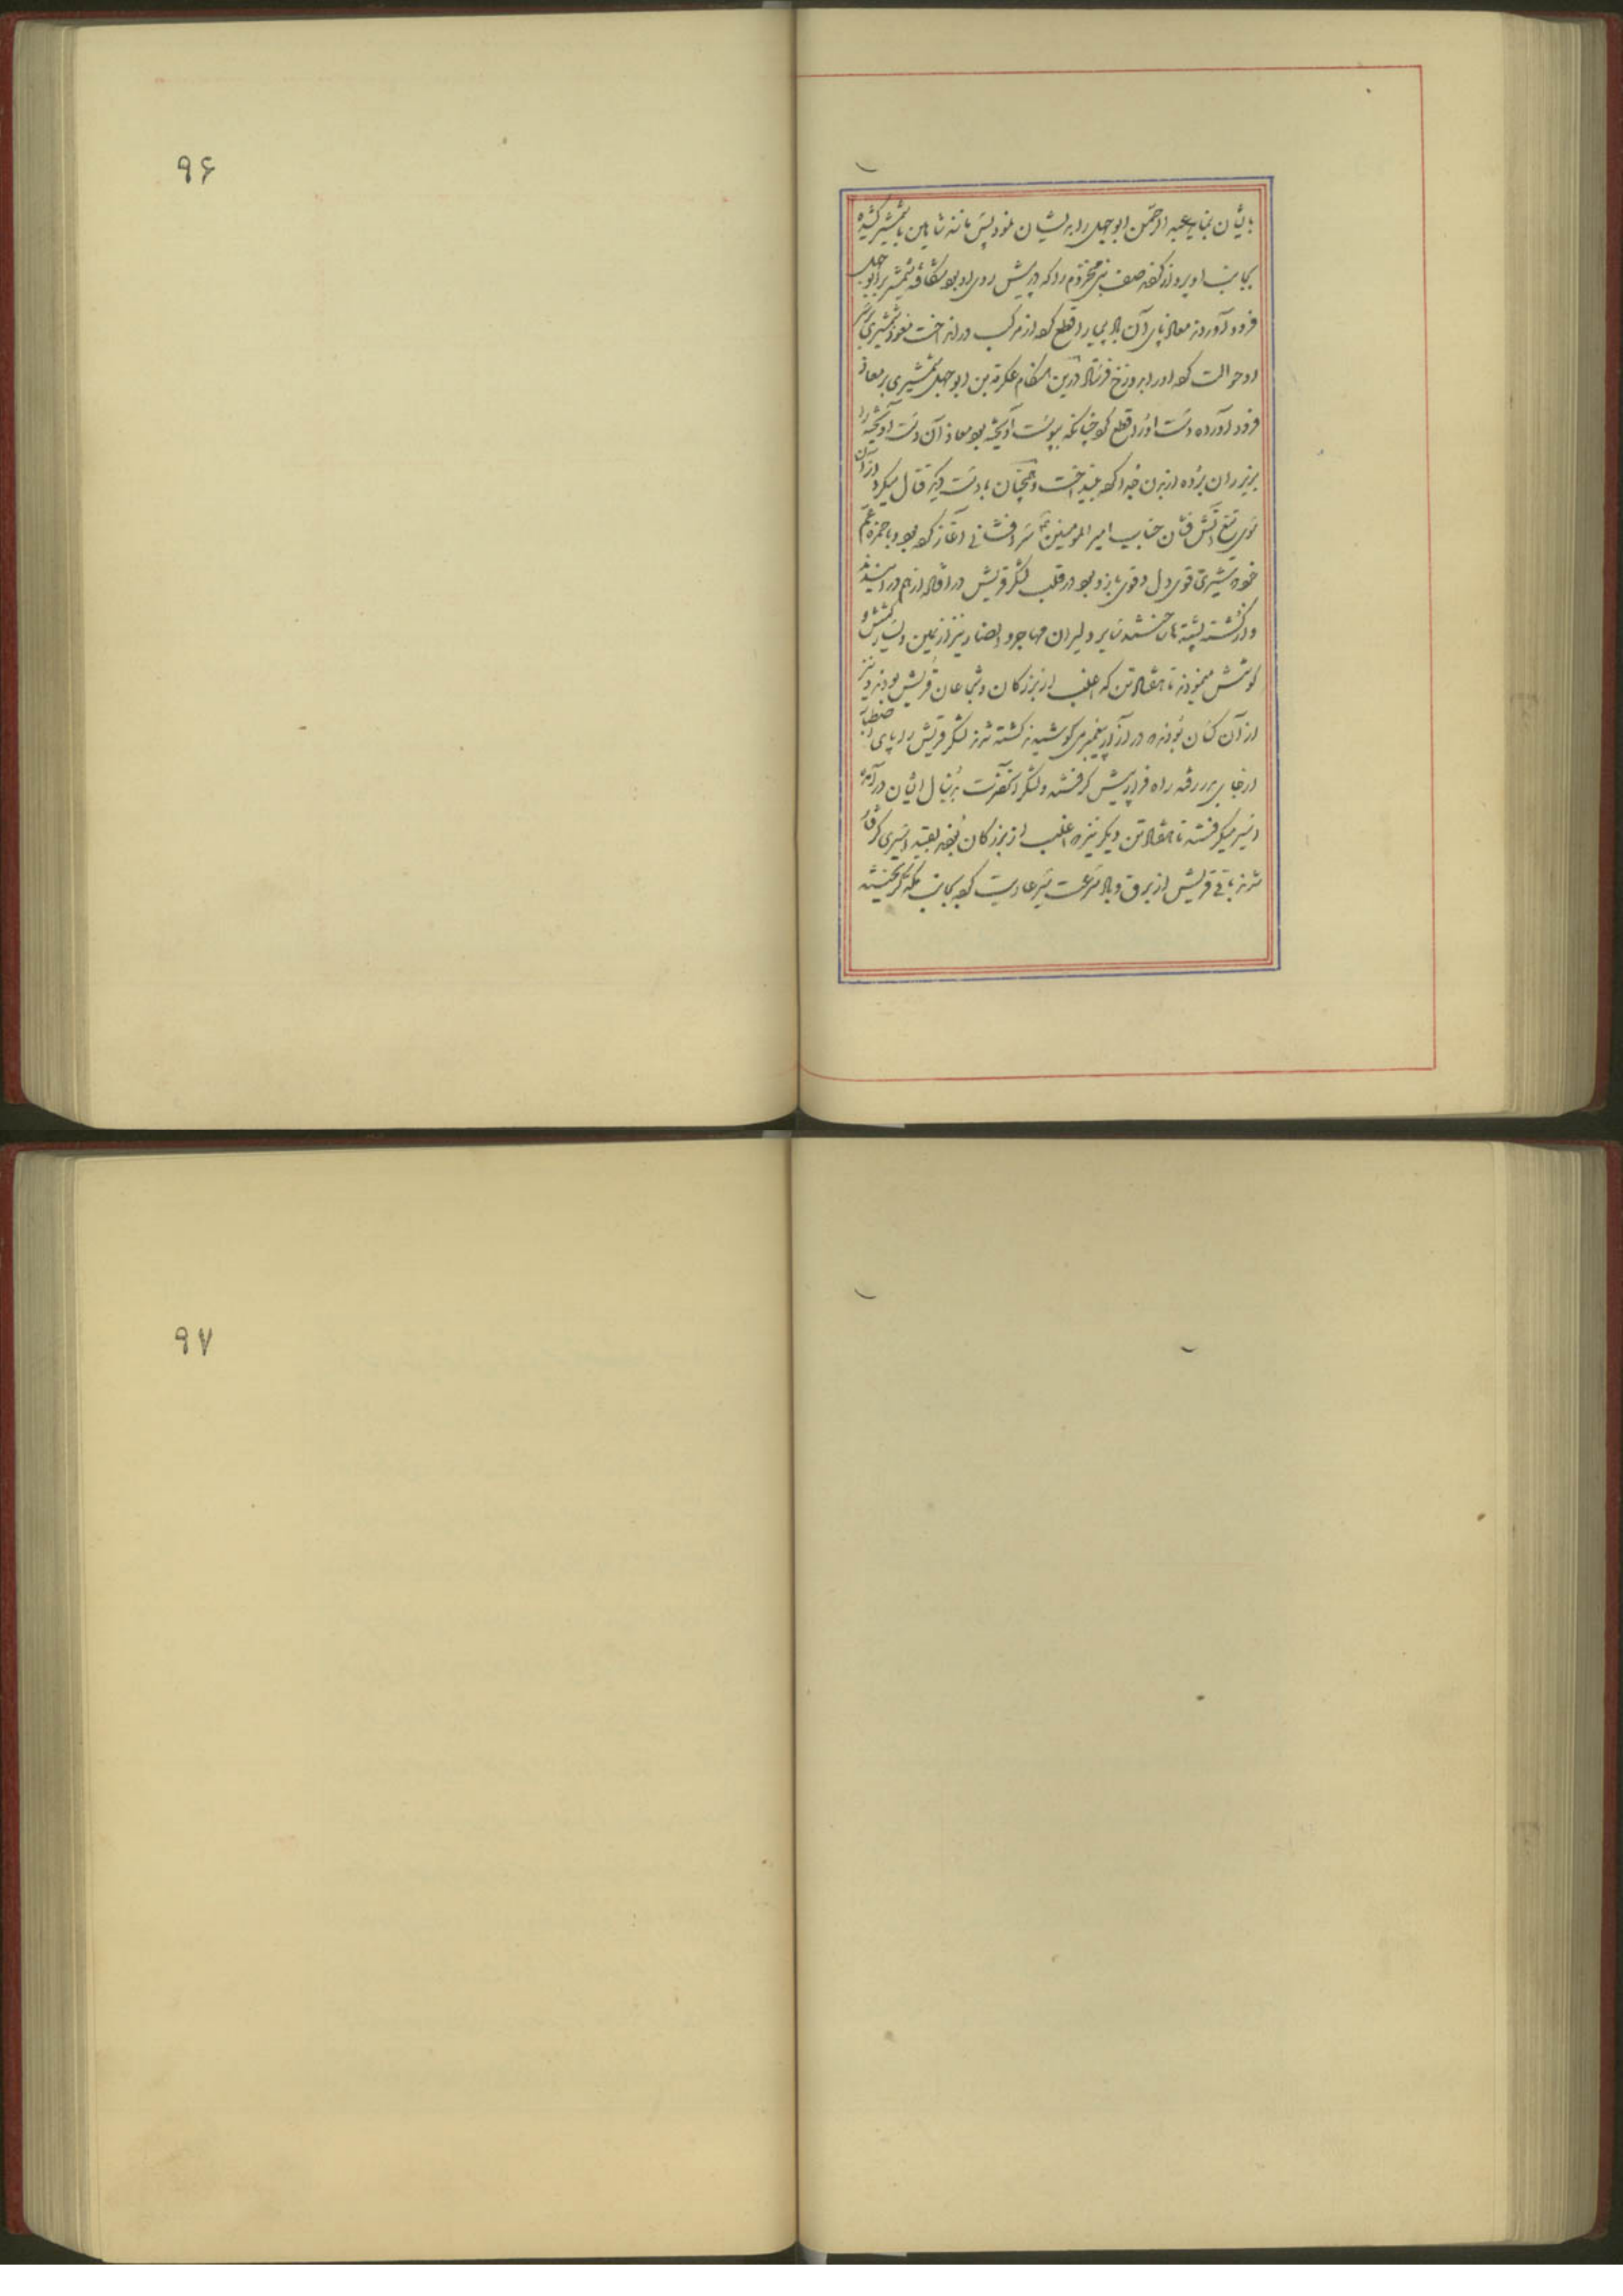 بایشان بنماید عبدالرحمن ابوجهل را بدیشان نمود پس مانند شاهین با شمشیر کشیده
بجانب او پرواز کرده صف بنی مخزوم را که در پیش روی او بود شکافته شمشیر بر ابوجهل
فرود آوردند معاذ پای آن را قطع کرده از مرکب در انداخت معوذ شمشیری بر سر
او حوالت کرده او را بدوزخ فرستاد درین هنگام عکرمه بن ابوجهل شمشیری بر معاذ
فرود آورده دست او را قطع کرد چنانکه بپوست آویخته بود معاذ آن دست آویخته را
بزیر ران برده از بدن جدا کرده بینداخت و همچنان با دست دیگر قتال میکرد از آن
سوی تیغ آتش فشان جناب امیر المومنین سر افشانی آغاز کرده بود و با حمزه عم
خود شیری قوی دل و قوی بازو بود در قلب لشکر قریش در
و از کشته پشته ها خستند سایر دلیران مهاجر و انصار نیز از یمین و یسار کشش و
کوشش مینمودند تا هفتاد تن که اغلب از بزرگان و شجاعان قریش بودند و نیز
از آن کسان بودند که در آزار پیغمبر می کوشیدند کشته شدند لشکر قریش را پای اصطبار
از جای بدر رفته راه فرار پیش گرفتند و لشکر آنحضرت بدنبال ایشان در آمده
اسیر میگرفتند تا هفتاد تن دیگر نیز که اغلب از بزرگان بودند بقید اسیری گرفتار
شدند باقی قریش از برق و باد سرعت سیر عاریت کرده بجانب مکه گریختند
۹۶
۹۷